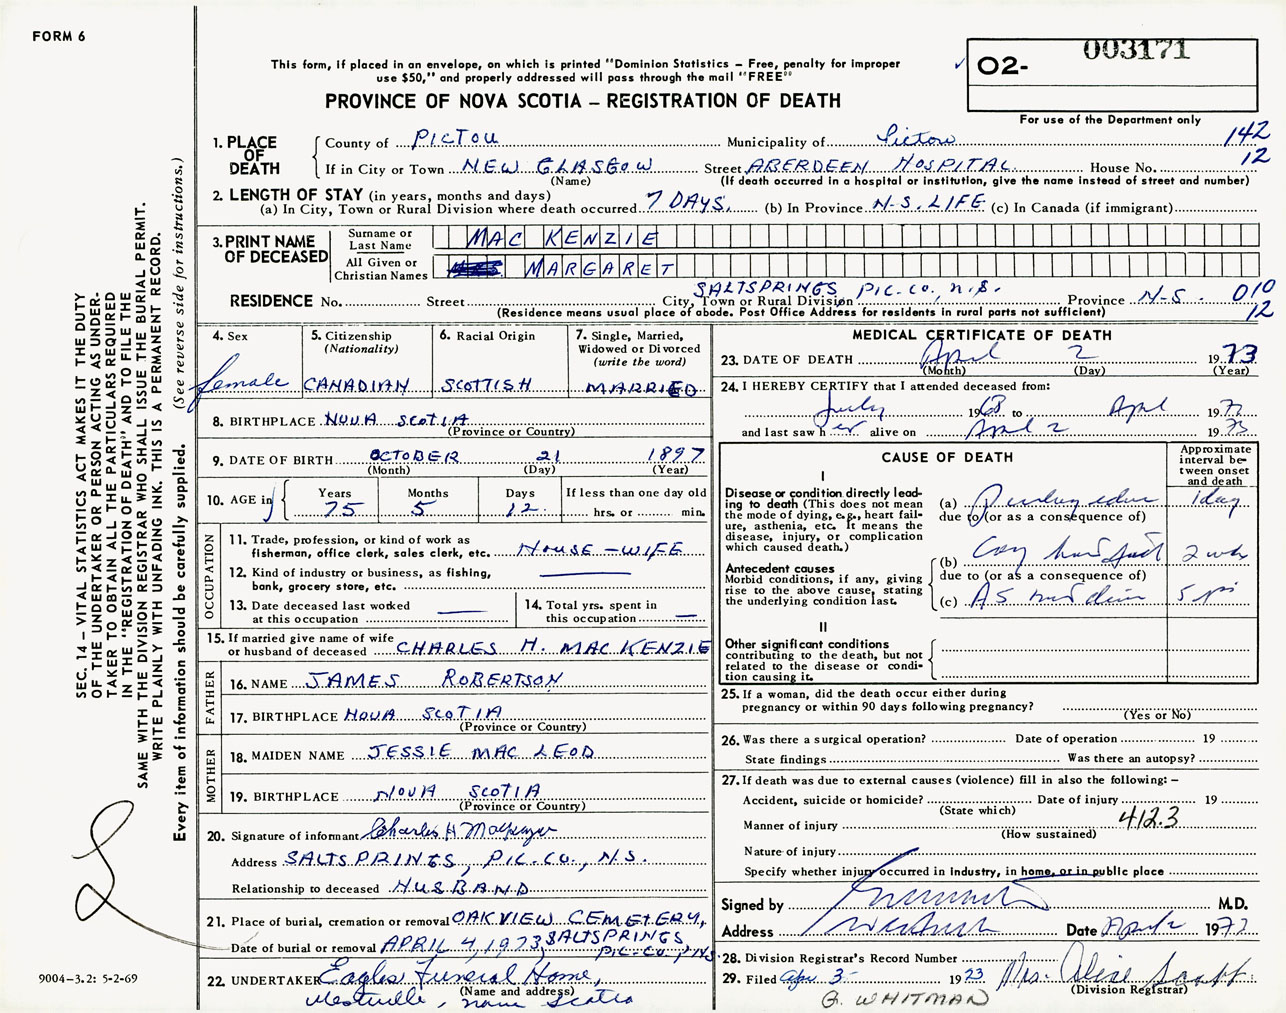 FORM 6
003171
This form, if placed in an envelope, on which is printed "Dominion Statistics – Free, penalty for improper
use $50," and properly addressed will pass through the mail "FREE"
✓ 02-
PROVINCE OF NOVA SCOTIA – REGISTRATION OF DEATH
For use of the Department only
1. PLACE OF DEATH
County of PICTOU Municipality of Pictou 142
If in City or Town NEW GLASGOW Street ABERDEEN HOSPITAL House No. 12
(Name) (If death occurred in a hospital or institution, give the name instead of street and number)
2. LENGTH OF STAY (in years, months and days)
(a) In City, Town or Rural Division where death occurred 7 DAYS. (b) In Province N.S. LIFE (c) In Canada (if immigrant)
3. PRINT NAME OF DECEASED
Surname or Last Name MAC KENZIE
All Given or Christian Names MARGARET
SALTSPRINGS PIC. CO., N.S.
RESIDENCE No. Street City, Town or Rural Division Province N.S. 010
(Residence means usual place of abode. Post Office Address for residents in rural parts not sufficient) 12
4. Sex female
5. Citizenship (Nationality) CANADIAN
6. Racial Origin SCOTTISH
7. Single, Married, Widowed or Divorced (write the word) MARRIED
8. BIRTHPLACE NOVA SCOTIA
(Province or Country)
9. DATE OF BIRTH OCTOBER 21 1897
(Month) (Day) (Year)
10. AGE in Years 75 Months 5 Days 12 If less than one day old hrs. or min.
OCCUPATION
11. Trade, profession, or kind of work as
fisherman, office clerk, sales clerk, etc. HOUSE-WIFE
12. Kind of industry or business, as fishing,
bank, grocery store, etc.
13. Date deceased last worked
at this occupation
14. Total yrs. spent in
this occupation
15. If married give name of wife
or husband of deceased CHARLES H. MAC KENZIE
FATHER
16. NAME JAMES ROBERTSON
17. BIRTHPLACE NOVA SCOTIA
(Province or Country)
MOTHER
18. MAIDEN NAME JESSIE MAC LEOD
19. BIRTHPLACE NOVA SCOTIA
(Province or Country)
20. Signature of informant Charles H
Address SALTSPRINGS, PIC. CO., N.S.
Relationship to deceased HUSBAND
21. Place of burial, cremation or removal OAKVIEW CEMETERY,
Date of burial or removal APRIL 4, 1973 SALTSPRINGS
PIC. CO., N.S.
22. UNDERTAKER Eagles Funeral Home,
(Name and address)
Westville, Nova Scotia
MEDICAL CERTIFICATE OF DEATH
23. DATE OF DEATH April 2 1973
(Month) (Day) (Year)
24. I HEREBY CERTIFY that I attended deceased from:
July 1968 to April 19
and last saw her alive on April 2 1973
CAUSE OF DEATH
Approximate interval between onset and death
I
Disease or condition directly leading to death (This does not
mean the mode of dying, e.g., heart failure, asthenia, etc. It means the
disease, injury, or complication
which caused death.)
(a) 1 day
due to (or as a consequence of)
Antecedent causes
Morbid conditions, if any, giving
rise to the above cause, stating
the underlying condition last.
(b)
due to (or as a consequence of)
(c) A S
II
Other significant conditions
contributing to the death, but not
related to the disease or condition
causing it.
25. If a woman, did the death occur either during
pregnancy or within 90 days following pregnancy?
(Yes or No)
26. Was there a surgical operation? Date of operation 19
State findings Was there an autopsy?
27. If death was due to external causes (violence) fill in also the following: –
Accident, suicide or homicide? Date of injury 19
(State which)
Manner of injury 412.3
(How sustained)
Nature of injury
Specify whether injury occurred in industry, in home, or in public place
Signed by M.D.
Address Date April 2 19
28. Division Registrar's Record Number
29. Filed Apr 3 Mrs. Alice
(Division Registrar)
G. WHITMAN
SEC. 14 – VITAL STATISTICS ACT MAKES IT THE DUTY
OF THE UNDERTAKER OR PERSON ACTING AS UNDER-
TAKER TO OBTAIN ALL THE PARTICULARS REQUIRED
IN THE "REGISTRATION OF DEATH" AND TO FILE THE
SAME WITH THE DIVISION REGISTRAR WHO SHALL ISSUE THE BURIAL PERMIT.
WRITE PLAINLY WITH UNFADING INK. THIS IS A PERMANENT RECORD.
Every item of information should be carefully supplied. (See reverse side for instructions.)
9004-3.2: 5-2-69